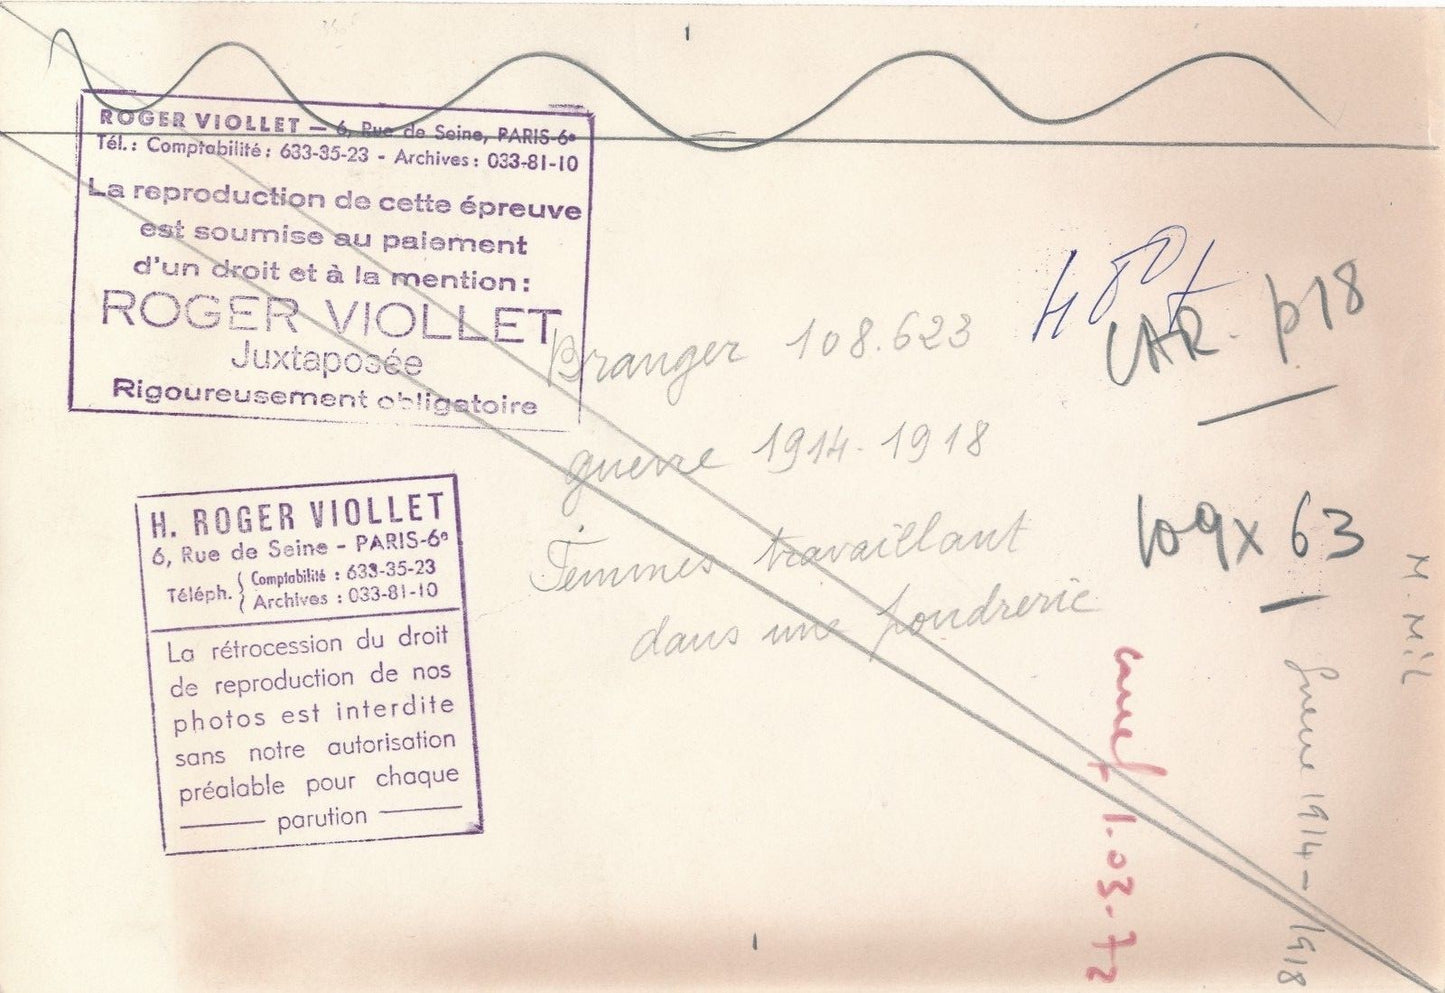 ROGER VIOLLET — 6, Rue de Seine, PARIS-6e
Tél.: Comptabilité: 633-35-23 - Archives: 033-81-10
La reproduction de cette épreuve
est soumise au paiement
d'un droit et à la mention:
ROGER VIOLLET
Juxtaposée
Rigoureusement obligatoire
H. ROGER VIOLLET
6, Rue de Seine - PARIS-6e
Téléph. { Comptabilité : 633-35-23
Archives : 033-81-10
La rétrocession du droit
de reproduction de nos
photos est interdite
sans notre autorisation
préalable pour chaque
parution
Branger 108.623
guerre 1914-1918
Femmes travaillant
dans une fondrerie
p18
63
1.03-72
guerre 1914-1918
M. Mil